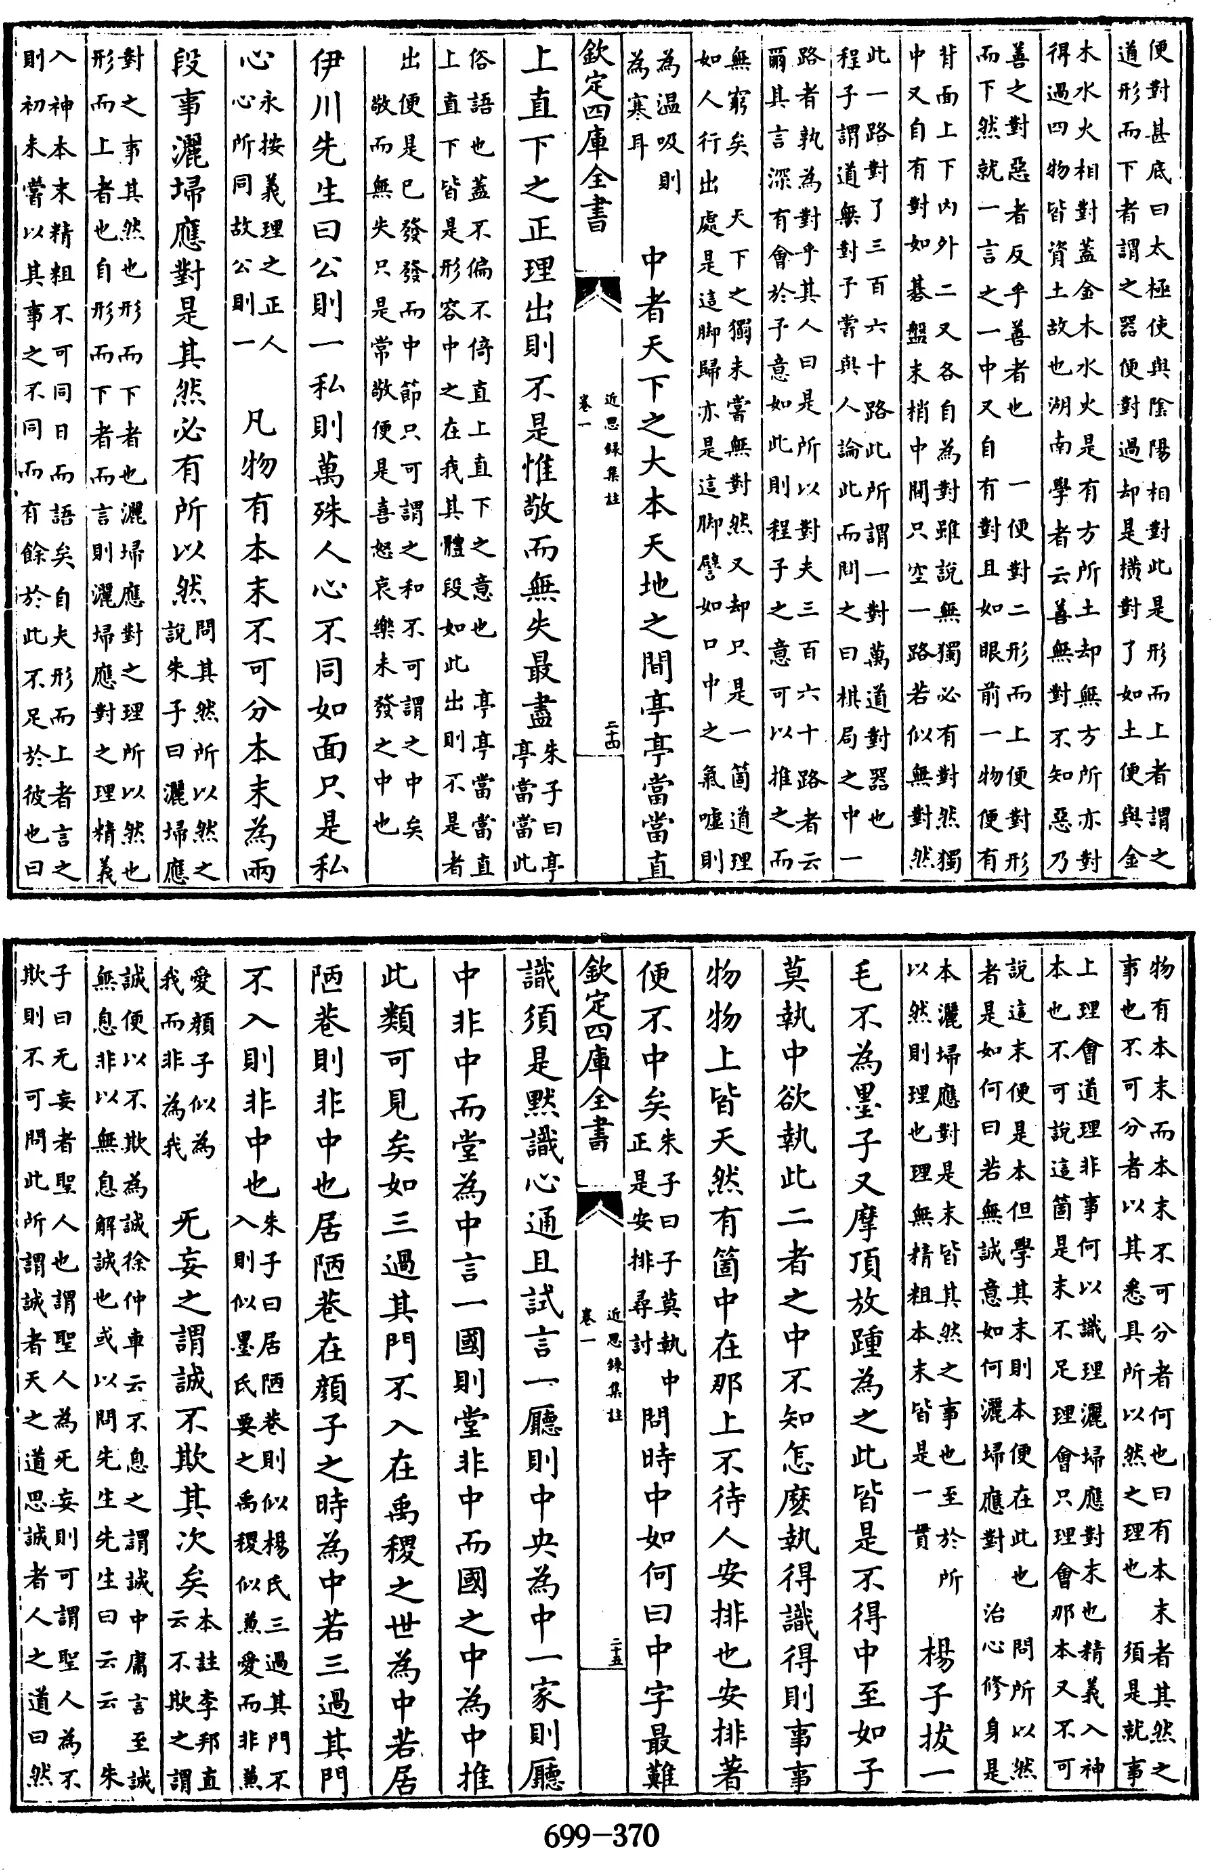 便對甚底曰太極便與陰陽相對此是形而上者謂之
道形而下者謂之器便對過却是橫對了如土便與金
木水火相對蓋金木水火是有方所土却無方所亦對
得過四物皆資土故也湖南學者云善無對不知惡乃
善之對惡者反乎善者也 一便對二形而上便對形
而下然就一言之一中又自有對且如眼前一物便有
背面上下內外二又各自為對雖說無獨必有對然獨
中又自有對如碁盤末梢中間只空一路若似無對然
此一路對了三百六十路此所謂一對萬道對器也
程子謂道無對予嘗與人論此而問之曰棋局之中一
路者孰為對乎其人曰是所以對夫三百六十路者云
爾其言深有會於予意如此則程子之意可以推之而
無窮矣 天下之獨未嘗無對然又却只是一箇道理
如人行出處是這脚歸亦是這脚譬如口中之氣噓則
為溫吸則
為寒耳
中者天下之大本天地之間亭亭當當直
欽定四庫全書
近思錄集註
卷一
二十四
上直下之正理出則不是惟敬而無失最盡
朱子曰亭
亭當當此
俗語也蓋不偏不倚直上直下之意也 亭亭當當直
上直下皆是形容中之在我其體段如此出則不是者
出便是已發發而中節只可謂之和不可謂之中矣
敬而無失只是常敬便是喜怒哀樂未發之中也
伊川先生曰公則一私則萬殊人心不同如面只是私
心
永按義理之正人
心所同故公則一
凡物有本末不可分本末為兩
段事灑掃應對是其然必有所以然
問其然所以然之
說朱子曰灑掃應
對之事其然也形而下者也灑掃應對之理所以然也
形而上者也自形而下者而言則灑掃應對之理精義
入神本末精粗不可同日而語矣自夫形而上者言之
則初未嘗以其事之不同而有餘於此不足於彼也曰
物有本末而本末不可分者何也曰有本末者其然之
事也不可分者以其悉具所以然之理也 須是就事
上理會道理非事何以識理灑掃應對末也精義入神
本也不可說這箇是末不足理會只理會那本又不可
說這末便是本但學其末則本便在此也 問所以然
者是如何曰若無誠意如何灑掃應對 治心修身是
本灑掃應對是末皆其然之事也至於所
以然則理也理無精粗本末皆是一貫
楊子拔一
毛不為墨子又摩頂放踵為之此皆是不得中至如子
莫執中欲執此二者之中不知怎麽執得識得則事事
物物上皆天然有箇中在那上不待人安排也安排著
便不中矣
朱子曰子莫執中
正是安排尋討
問時中如何曰中字最難
欽定四庫全書
近思錄集註
卷一
二十五
識須是默識心通且試言一廳則中央為中一家則廳
中非中而堂為中言一國則堂非中而國之中為中推
此類可見矣如三過其門不入在禹稷之世為中若居
陋巷則非中也居陋巷在顔子之時為中若三過其門
不入則非中也
朱子曰居陋巷則似楊氏三過其門不
入則似墨氏要之禹稷似兼愛而非兼
愛顔子似為
我而非為我
无妄之謂誠不欺其次矣
本註李邦直
云不欺之謂
誠便以不欺為誠徐仲車云不息之謂誠中庸言至誠
無息非以無息解誠也或以問先生先生曰云云 朱
子曰无妄者聖人也謂聖人為无妄則可謂聖人為不
欺則不可問此所謂誠者天之道思誠者人之道曰然
699–370